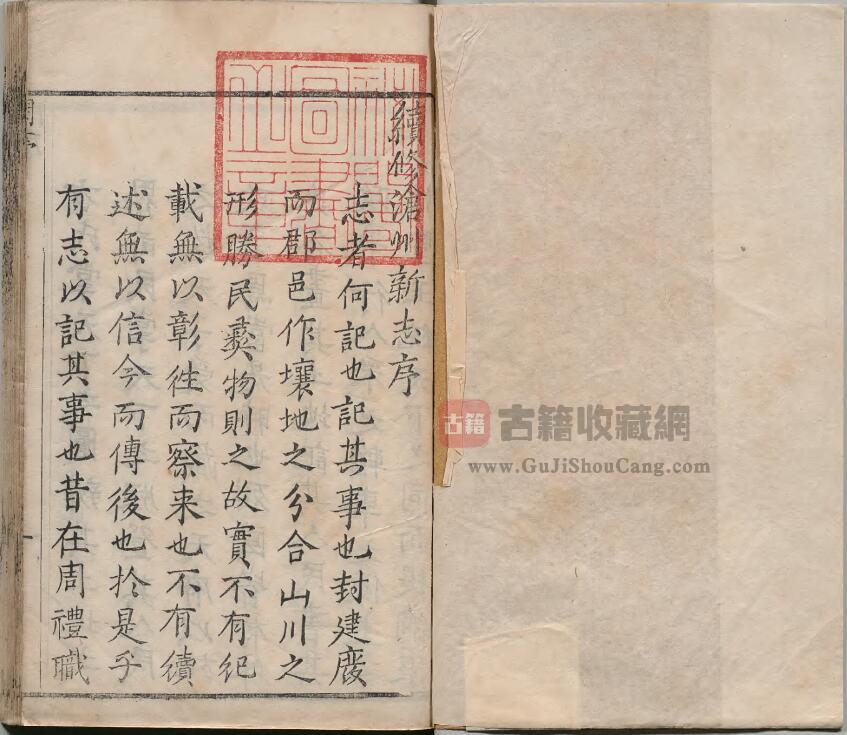 續修滄州新志序
志者何記也記其事也封建廢
而郡邑作壤地之分合山川之
形勝民彜物則之故實不有紀
載無以彰徃而察来也不有續
述無以信今而傳後也扵是乎
有志以記其事也昔在周禮職
古籍 古籍收藏網
www.GuJiShouCang.com